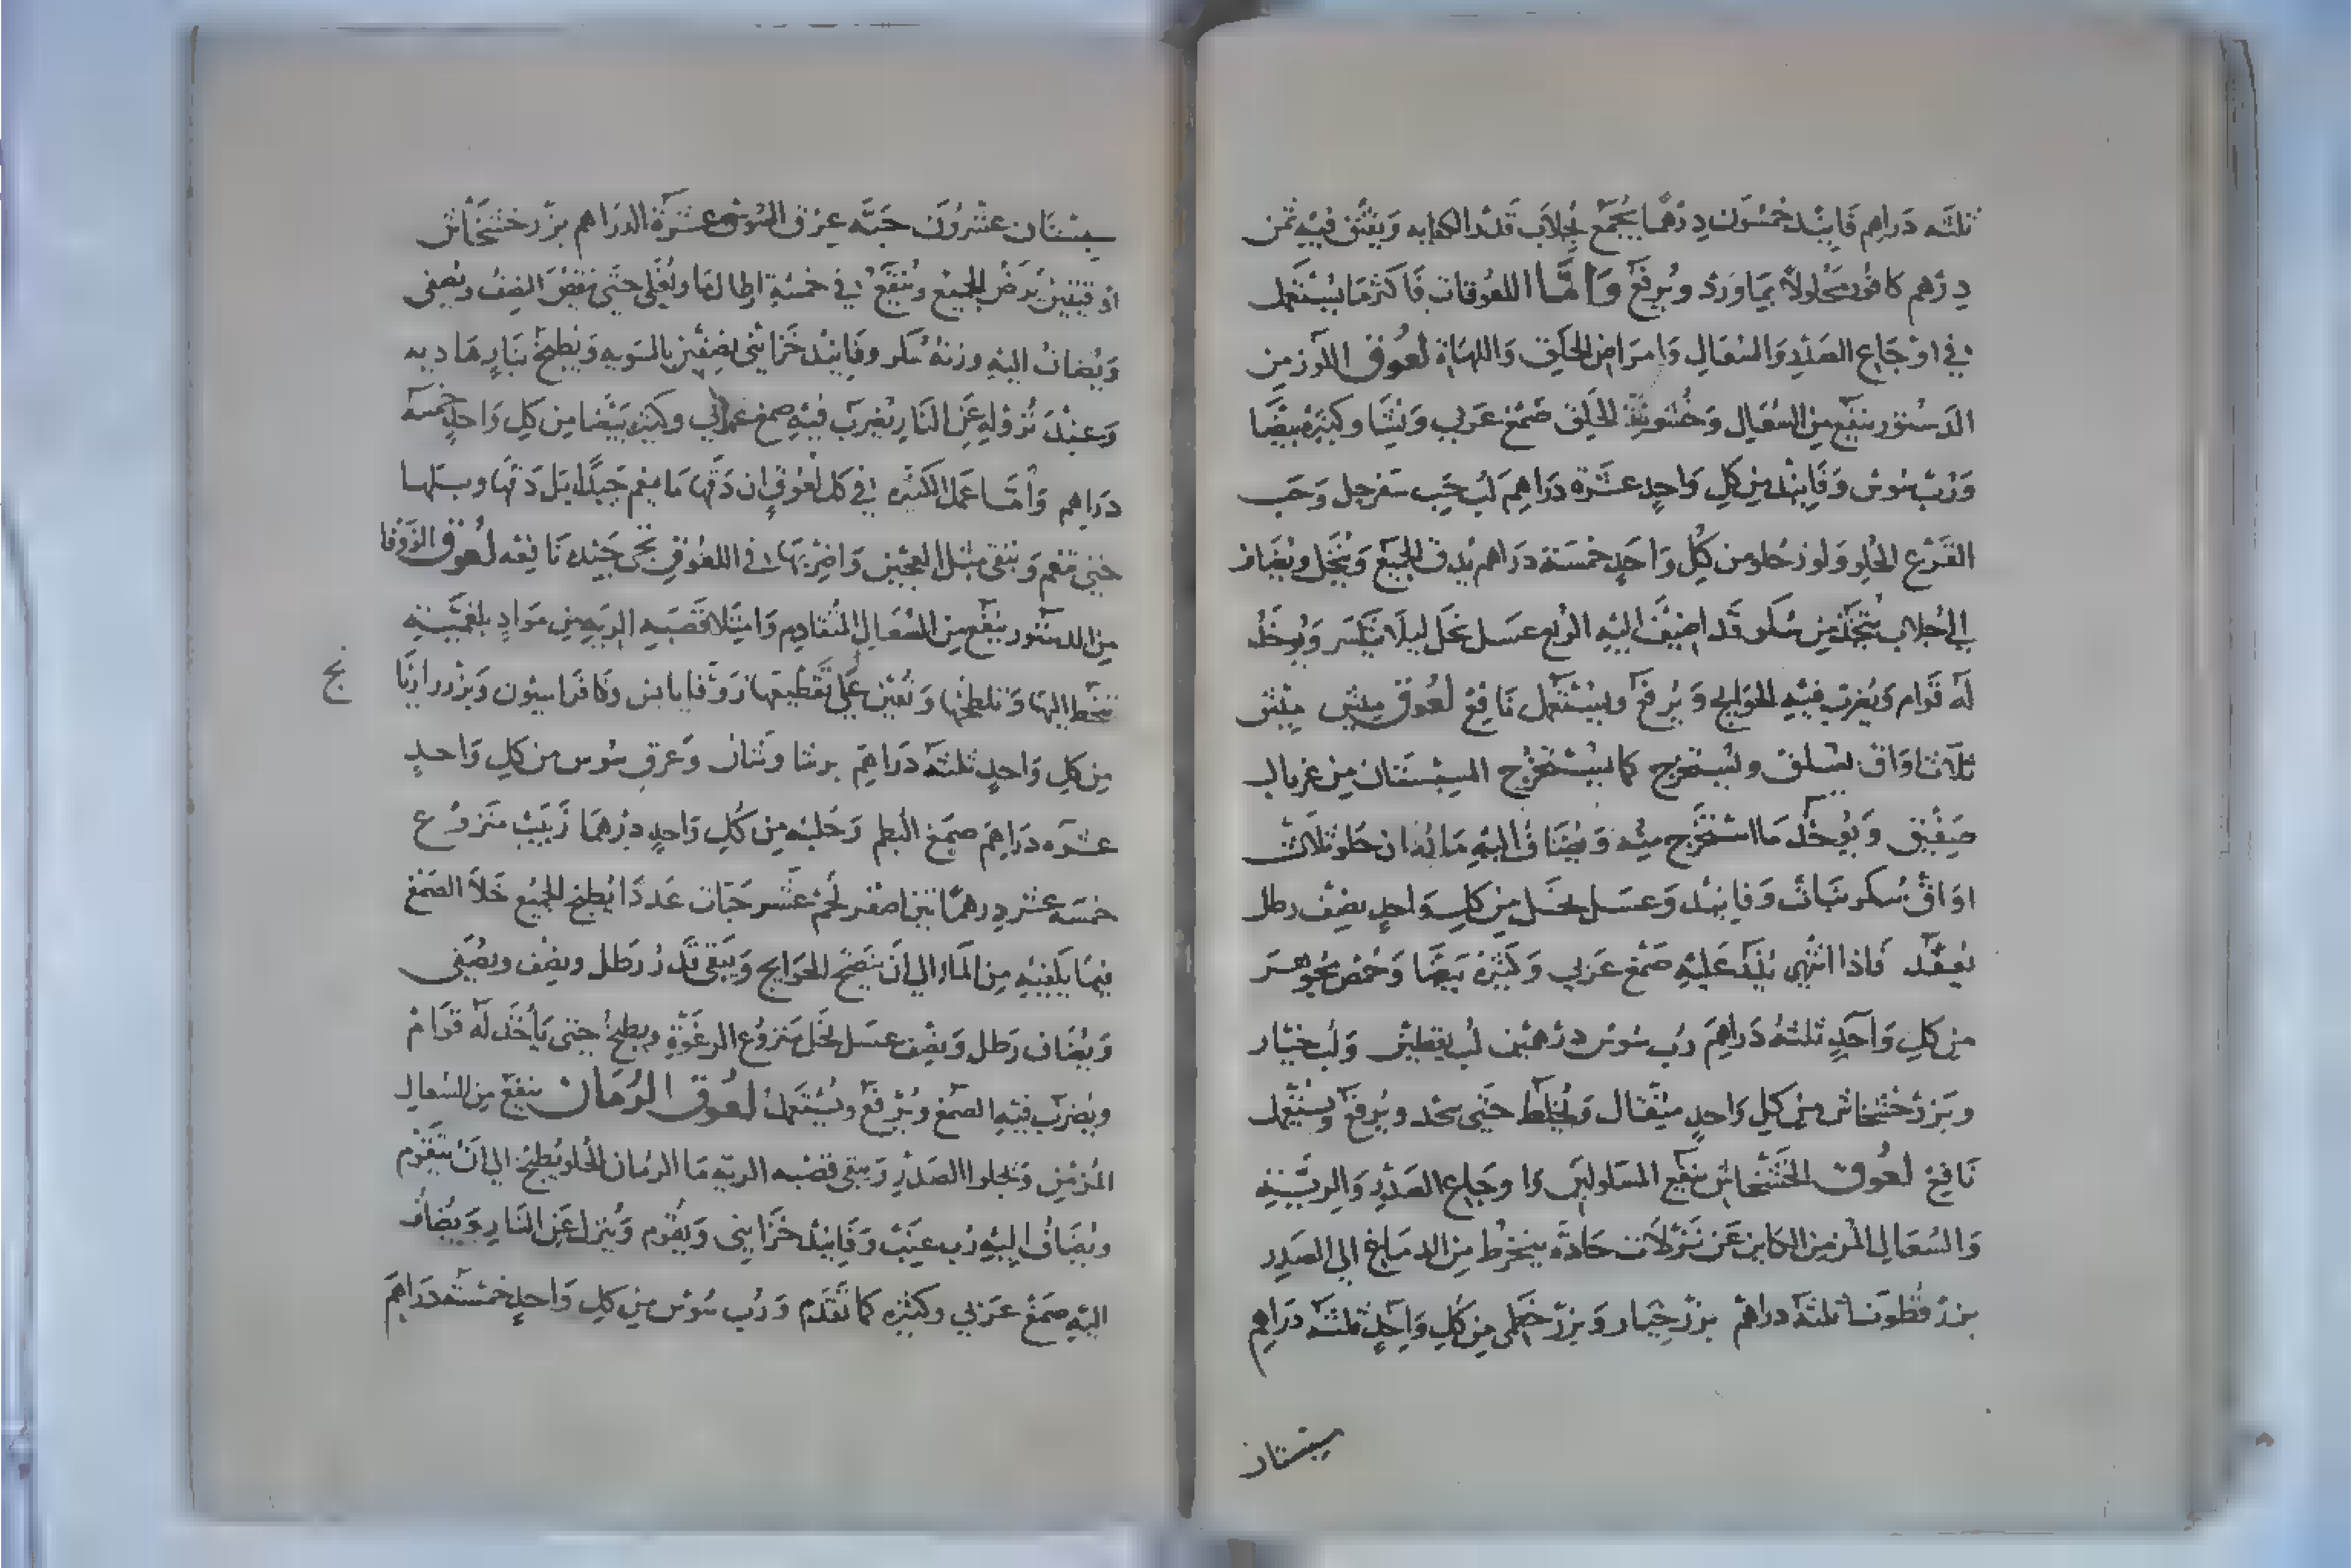 ثلثه دراهم فانيد خمسون درهما يجمع بجلاب قد الكفايه ويفتق فيه ثمن
درهم كافور محلولا بماورد ويرفع واما اللعوقات فاكثر ما يستعمل
في اوجاع الصدر والسعال وامراض الحلق واللهاة لعوق اللوز من
الدستور ينفع من السعال وخشونة الحلق صمغ عربي ونشا وكثيره بيضا
ورب سوس وفانيد من كل واحد عشرة دراهم لب حب سفرجل وحب
القرع الحلو ولوز حلو من كل واحد خمسة دراهم يدق الجميع وينخل ويضاف
الي جلاب متخذ من سكر قد اضيف اليه الربع عسل نحل ليلا يتكسر ويوخذ
له قوام ويضرب فيه الحوايج ويرفع ويستعمل نافع لعوق مشمش
ثلاث اواق يسلق ويستخرج كما يستخرج السبستان من غربال
صفيق ويوخذ ما استخرج منه ويضاف اليه ما رمان حلو ثلاث
اواق سكر نبات وفانيد وعسل نحل من كل واحد نصف رطل
يعقد فاذا انتهي يلقا عليه صمغ عربي وكثيره بيضا وحمص مجوهر
من كل واحد ثلثة دراهم رب سوس درهمين لب يقطين ولب خيار
وبزر خشخاش من كل واحد مثقال ويخلط حتي يتحد ويرفع ويستعمل
نافع لعوق الخشخاش ينفع المسلولين واوجاع الصدر والرية
والسعال المزمن الكاين عن نزلات حادة ينخرط من الدماغ الي الصدر
بزر قطونا ثلثة دراهم بزر خيار وبزر خطمي من كل واحد ثلثة دراهم
سبستان
سبستان عشرون حبه عرق السوس عشرة الدراهم بزر خشخاش
اوقيتين يرض الجميع وينقع في خمسة ارطال ما ويغلي حتي ينقص النصف ويصفي
ويضاف اليه وزنه سكر وفانيد خزايني نصفين بالسويه ويطبخ بنار هاديه
وعند نزوله عن النار يضرب فيه صمغ عربي وكثيره بيضا من كل واحد خمسة
دراهم واما عمل الكثيره في كل لعوق ان دقها ما ينعم جيدا بل دقها وبلها
حتي تنعم وتبقي مثل العجين واضربها في اللعوق تجي جيده نافعه لعوق الزوفا
من الدستور ينفع من السعال المتقادم وامتلا قصبه الريه من مواد بلغمية
تنحط اليها وتلطخها وتعين علي تقطيعها زوفا يابس وفراسيون وبزر رازيا
نج
من كل واحد ثلثه دراهم برشاوشان وعرق سوس من كل واحد
عشره دراهم صمغ البطم وحلبه من كل واحد درهما زبيب منزوع
خمسه عشر درهما تين اصفر لحم عشر حبات عددا يطبخ الجميع خلا الصمغ
فيما يكفيه من الماء الي ان ينضج الحوايج ويبقي قدر رطل ونصف ويصفي
ويضاف رطل ونصف عسل نحل منزوع الرغوة ويطبخ حتي ياخذ له قوام
ويضرب فيه الصمغ ويرفع ويستعمل لعوق الرمان ينفع من السعال
المزمن ويجلوا الصدر وينقي قصبه الريه ما الرمان الحلو يطبخ الي ان يتقوم
ويضاف اليه رب عنب وفانيد خزايني ويقوم وينزل عن النار ويضاف
اليه صمغ عربي وكثيره كما تقدم ورب سوس من كل واحد خمسة دراهم